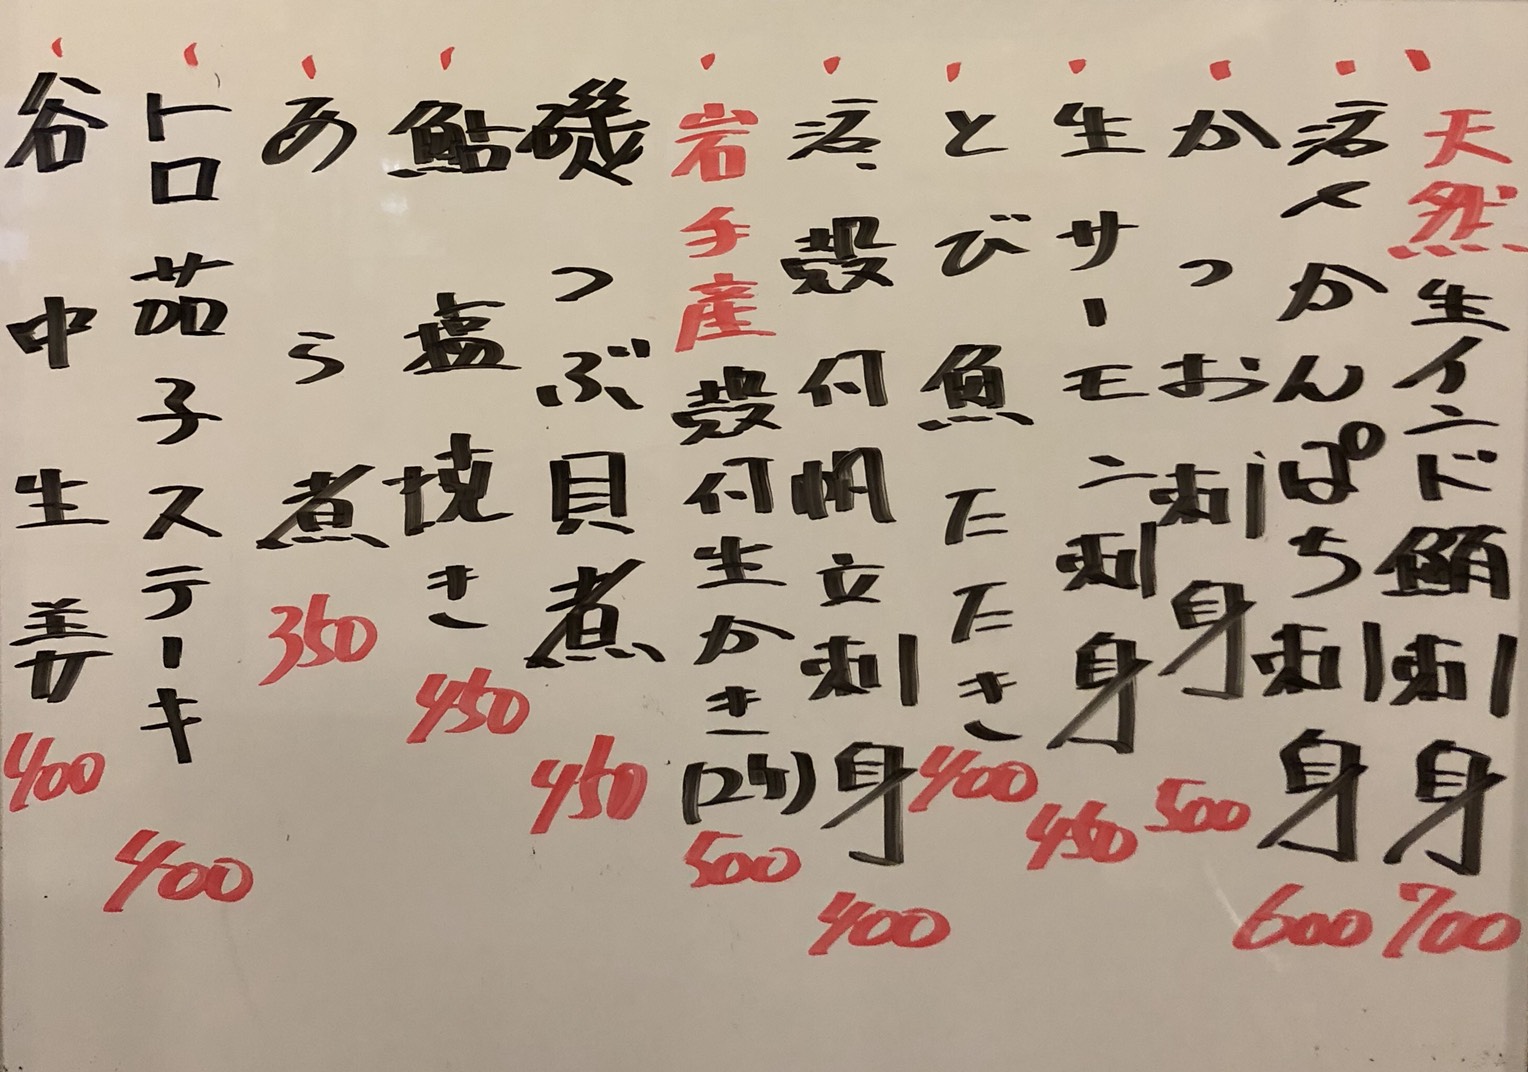 天然生インド鮪刺身 700
活〆かんぱち刺身 600
かつお刺身 500
生サーモン刺身 450
とび魚たたき 400
活殻付帆立刺身 400
岩手産殻付生かき(2ケ) 500
磯つぶ貝煮 450
鮎塩焼き 450
あら煮 350
トロ茄子ステーキ 400
谷中生姜 400